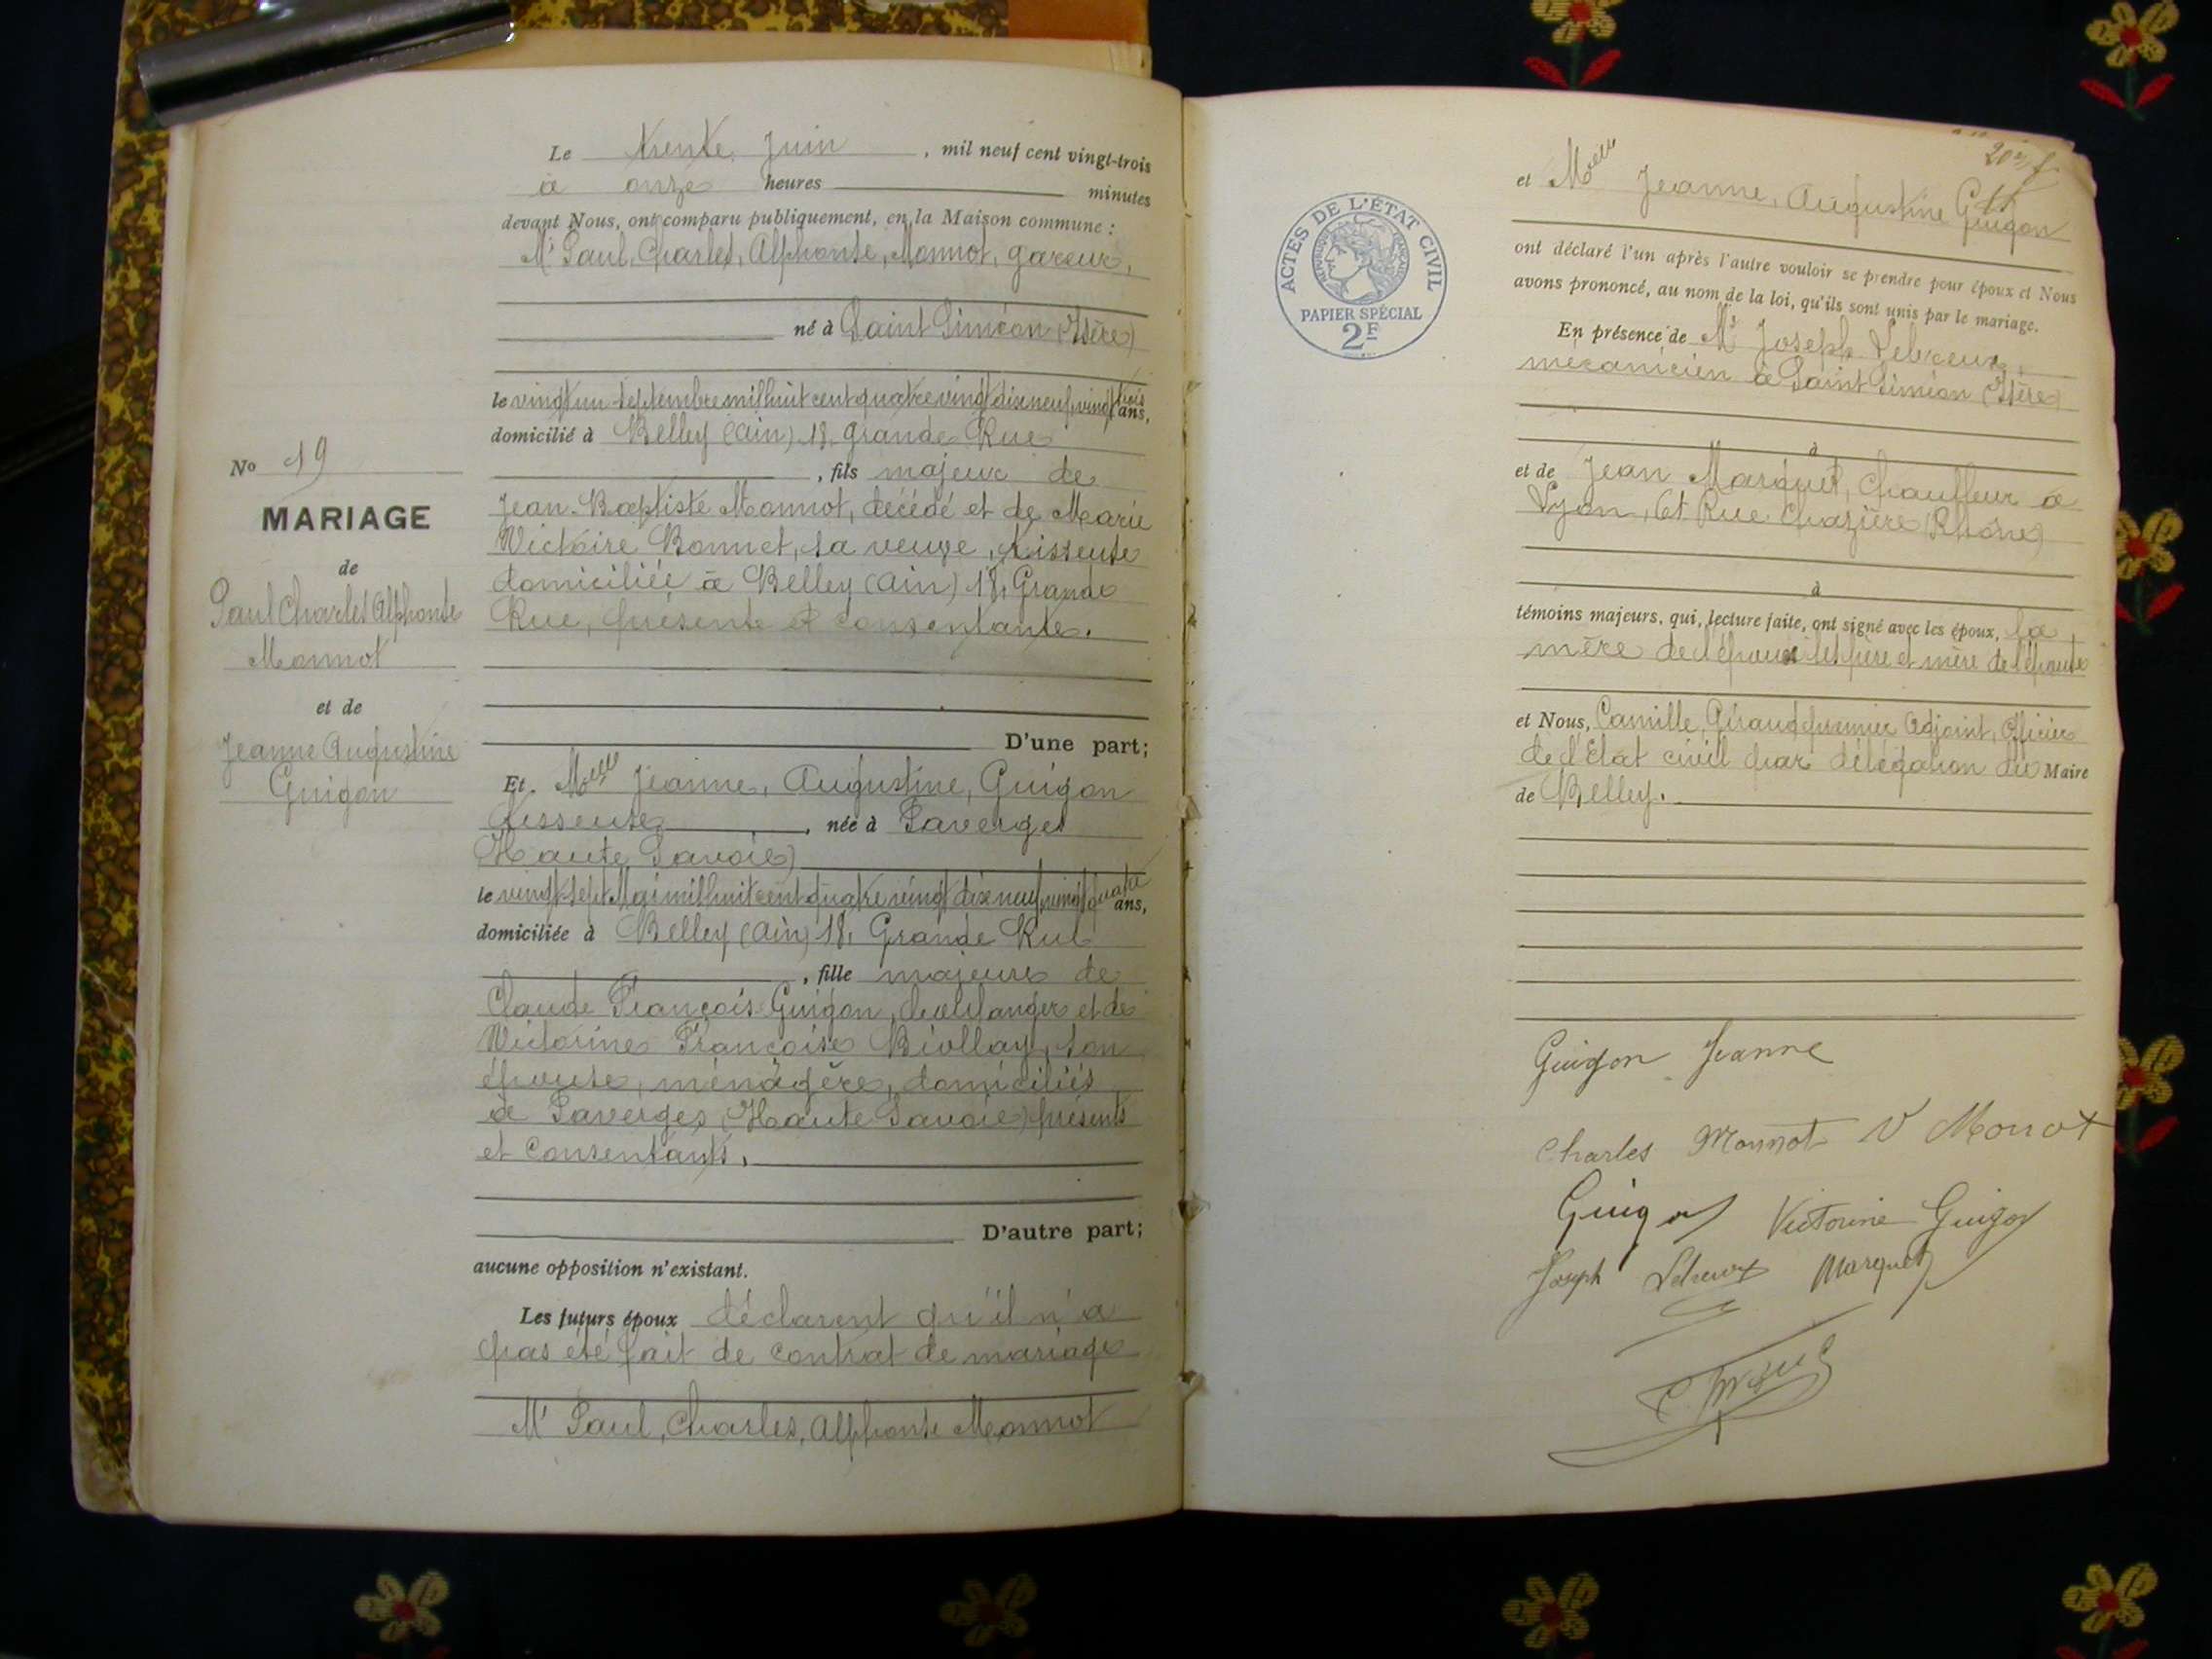 Le trente Juin, mil neuf cent vingt-trois
à onze heures minutes
devant Nous, ont comparu publiquement, en la Maison commune :
Mr Paul, Charles, Alphonse, Monnot, gareur,
né à Saint Siméon (Isère)
le vingt un septembre mil huit cent quatre vingt dix neuf, vingt trois ans,
domicilié à Belley (Ain) 18, Grande Rue
, fils majeur de
Jean-Baptiste Monnot, décédé et de Marie
Victoire Bonnet, sa veuve, tisseuse
domiciliée à Belley (Ain) 18, Grande
Rue, présente et consentante.
D'une part;
No 19
MARIAGE
de
Paul Charles Alphonse
Monnot
et de
Jeanne Augustine
Guigon
Et. Melle Jeanne, Augustine, Guigon
tisseuse, née à Faverges
(Haute Savoie)
le vingt-sept Mai mil huit cent quatre vingt dix neuf, vingt quatre ans,
domiciliée à Belley (Ain) 18, Grande Rue
, fille majeure de
Claude François Guigon, boulanger et de
Victorine Françoise Biollay, son
épouse, ménagère, domiciliés
à Faverges (Haute Savoie) présents
et consentants.
D'autre part;
aucune opposition n'existant.
Les futurs époux déclarent qu'il n'a
pas été fait de contrat de mariage
Mr Paul, Charles, Alphonse Monnot
ACTES DE L'ÉTAT CIVIL
RÉPUBLIQUE FRANÇAISE
PAPIER SPÉCIAL
2F
et Melle Jeanne, Augustine Guigon
ont déclaré l'un après l'autre vouloir se prendre pour époux et Nous
avons prononcé, au nom de la loi, qu'ils sont unis par le mariage.
En présence de Mr Joseph
mécanicien à Saint Siméon (Isère)
à
et de Jean Marquet, chauffeur à
Lyon, 61 Rue Chazière (Rhône)
à
témoins majeurs, qui, lecture faite, ont signé avec les époux, la
mère de l'époux les père et mère de l'épouse
et Nous, Camille, Giraud premier Adjoint, Officier
de l'Etat civil par délégation du Maire
de Belley.
Guigon Jeanne
Charles Monnot V Monot
Guigon Victorine Guigon
Joseph Marquet